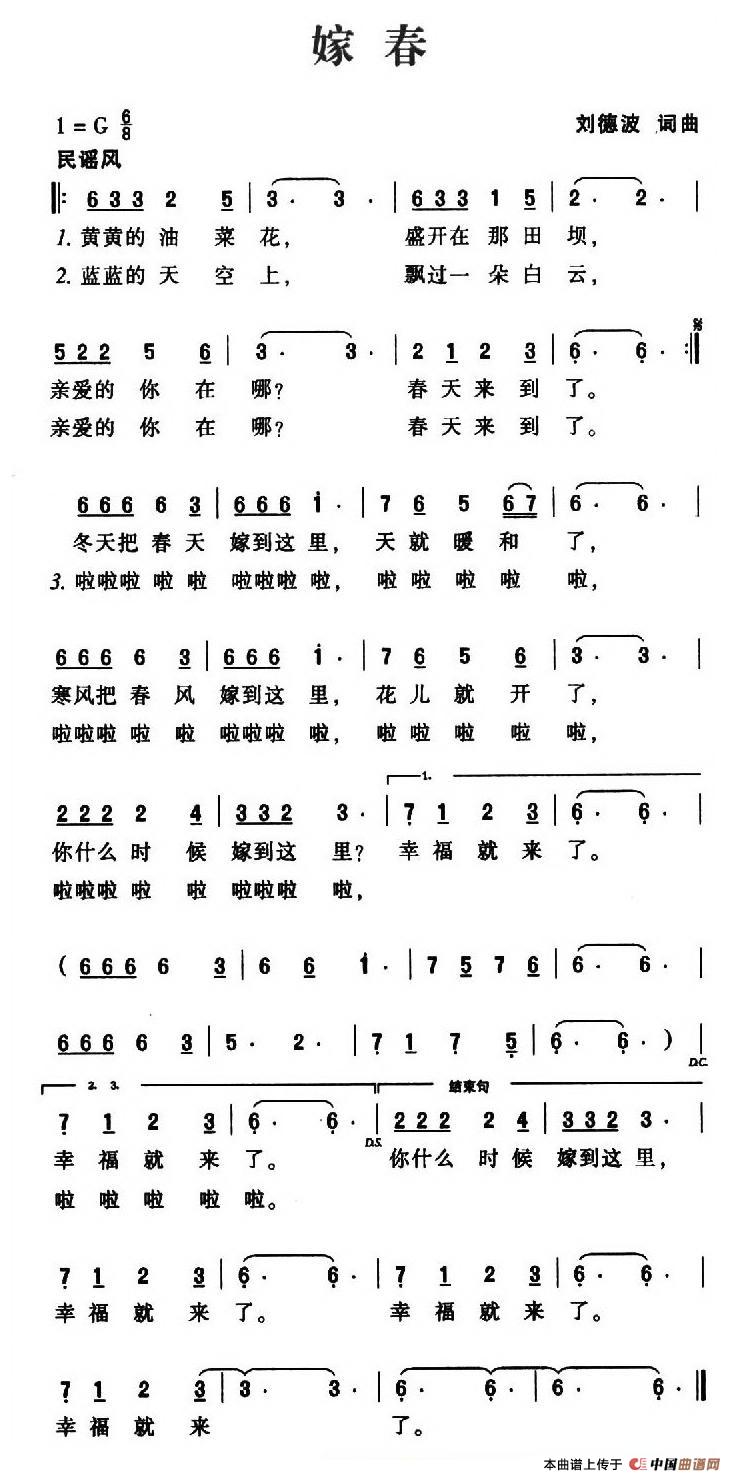 嫁春
1=G 6/8 刘德波 词曲
民谣风
‖: 6 3 3 2 5 | 3· 3· | 6 3 3 1 5 | 2· 2· |
1. 黄黄的 油 菜 花， 盛开在 那 田 坝，
2. 蓝蓝的 天 空 上， 飘过一 朵 白 云，
5 2 2 5 6 | 3· 3· | 2 1 2 3 | 6· 6· :‖
亲爱的 你 在 哪？ 春 天 来 到 了。
亲爱的 你 在 哪？ 春 天 来 到 了。
6 6 6 6 3 | 6 6 6 1· | 7 6 5 6 7 | 6· 6· |
冬天把 春 天 嫁到这 里， 天 就 暖 和 了，
3. 啦啦啦 啦 啦 啦啦啦 啦， 啦 啦 啦 啦 啦，
6 6 6 6 3 | 6 6 6 1· | 7 6 5 6 | 3· 3· |
寒风把 春 风 嫁到这 里， 花 儿 就 开 了，
啦啦啦 啦 啦 啦啦啦 啦， 啦 啦 啦 啦 啦，
1.
2 2 2 2 4 | 3 3 2 3· | 7 1 2 3 | 6· 6· |
你什么 时 候 嫁到这 里？ 幸 福 就 来 了。
啦啦啦 啦 啦 啦啦啦 啦，
( 6 6 6 6 3 | 6 6 1· | 7 5 7 6 | 6· 6· |
6 6 6 6 3 | 5· 2· | 7 1 7 5 | 6· 6· ) |
D.C.
2. 3. 结束句
7 1 2 3 | 6· 6· | 2 2 2 2 4 | 3 3 2 3· |
D.S.
幸 福 就 来 了。 你什么 时 候 嫁到这 里，
啦 啦 啦 啦 啦。
7 1 2 3 | 6· 6· | 7 1 2 3 | 6· 6· |
幸 福 就 来 了。 幸 福 就 来 了。
7 1 2 3 | 3· 3· | 6· 6· | 6· 6· ‖
幸 福 就 来 了。
本曲谱上传于 中国曲谱网